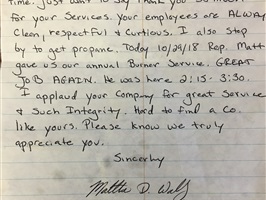 time. Just want to say thank you so much
for your Services. Your employees are ALWAY
Clean, respectful & Curtious. I also stop
by to get propane. Today 10/29/18 Rep. Matt
gave us our annual Burner Service. GREAT
JOB AGAIN. He was here 2:15- 3:30.
I applaud your Company for great Service
& Such Integrity. Hard to find a Co.
like yours. Please know we truly
appreciate you.
Sincerly
Mattie D. Wolf